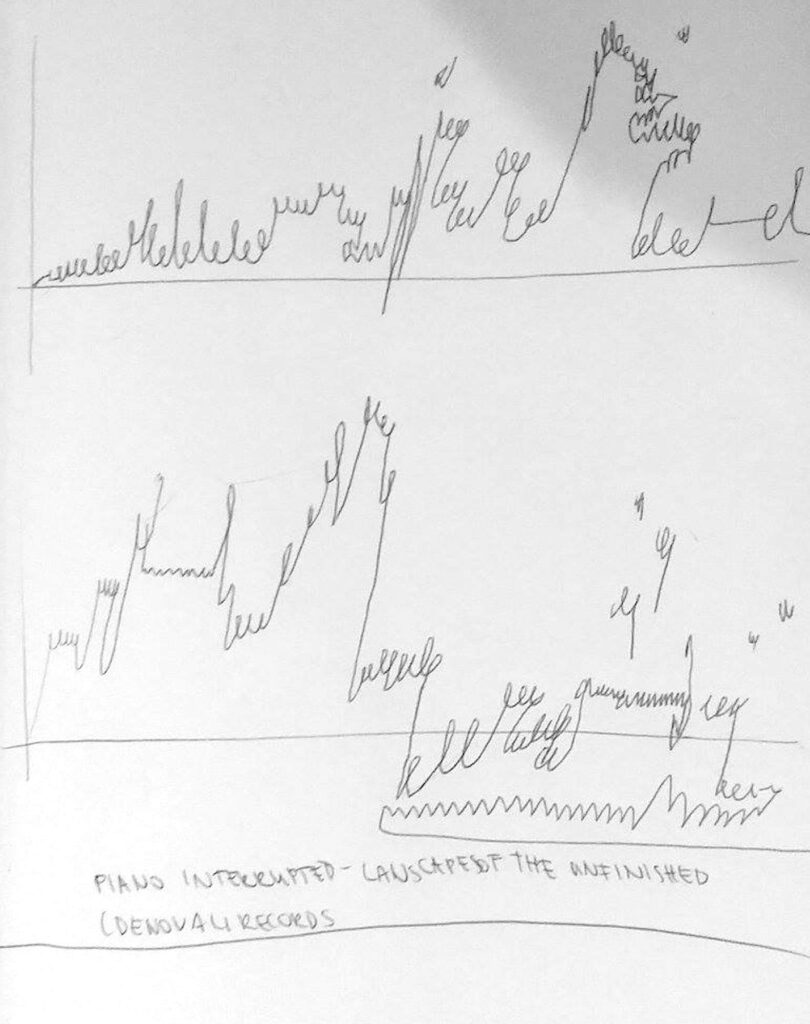 PIANO INTERRUPTED - LANSCAPES OF THE UNFINISHED
(DENOVALI RECORDS